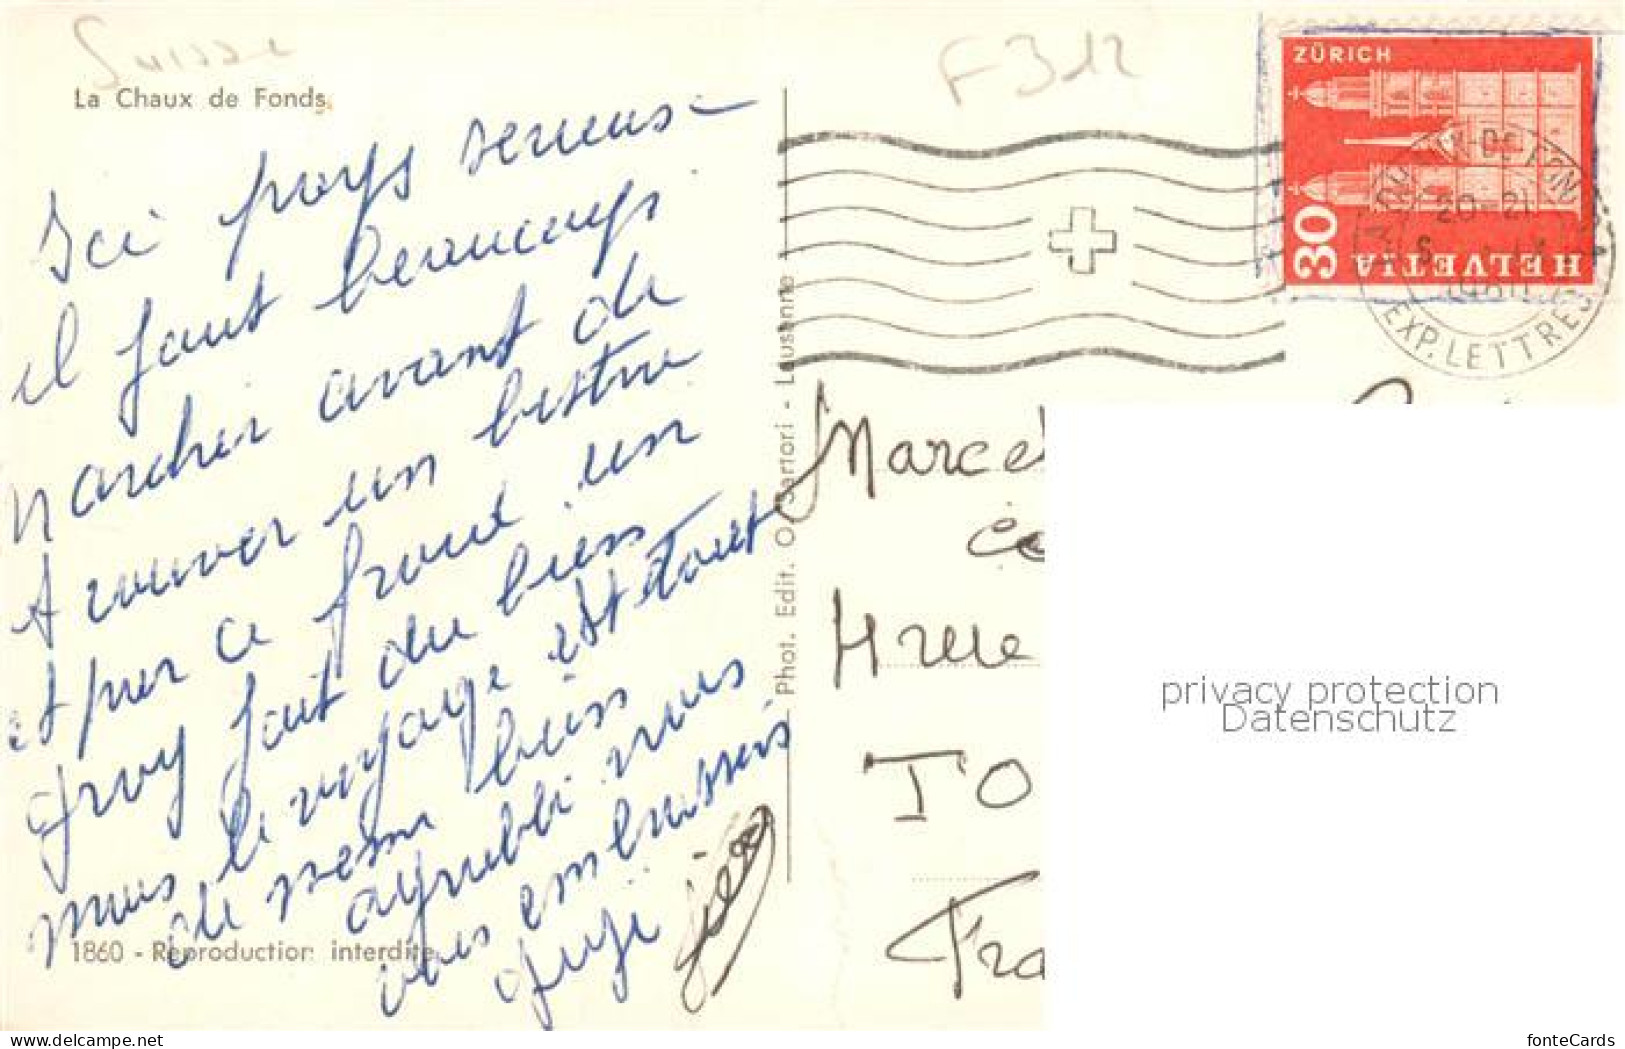 Suisse
La Chaux de Fonds
F 312
Ici pays serieus-
il faut beaucoup
marcher avant de
trouver un bistrue
et puer ce froue un
groy fait du bien
mais le voyage est tout
de même bien
agreable nous
vous embrassons
1860 - Reproduction interdite
Phot. Edit. O. Sartori - Lausanne
ZÜRICH
30
HELVETIA
20-21
EXP. LETTRES
Marcel
TO
Fra
privacy protection
Datenschutz
www.delcampe.net
fonteCards